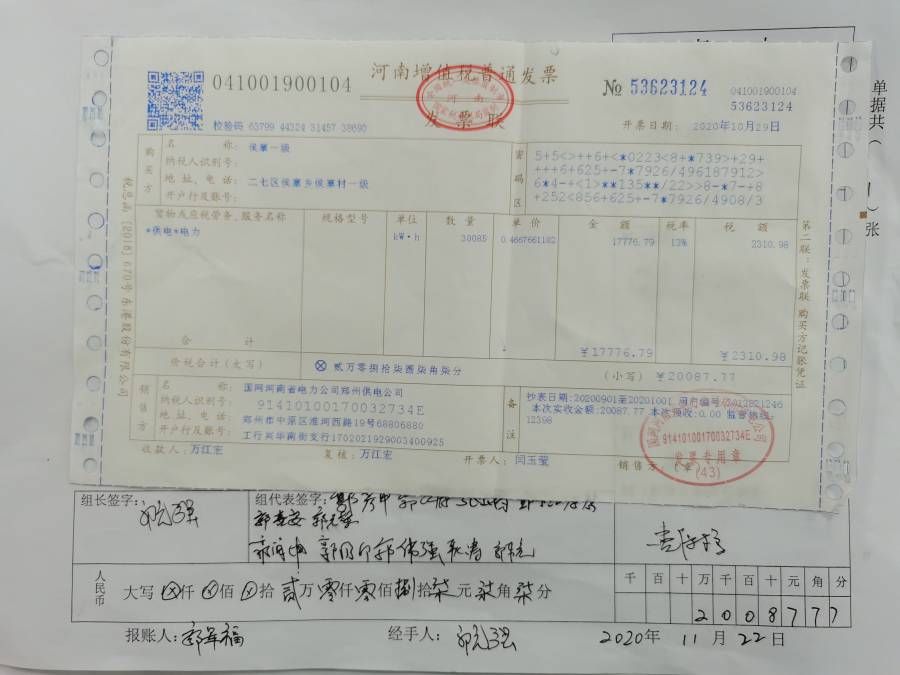 041001900104
河南增值税普通发票
发票联
№ 53623124
041001900104
53623124
校验码 63799 44324 31457 38690
开票日期: 2020年10月29日
单据共(1)张
购买方
名 称: 侯寨一级
纳税人识别号:
地 址、电 话: 二七区侯寨乡侯寨村一级
开户行及账号:
密码区
5+5<>++6+<*0223<8+*739>+29+
+++6+625+-7*7926/496187912>
6*4-+<1>**135**/22>>8-*7-+8
+252<856+625+-7*7926/4908/3
货物或应税劳务、服务名称 规格型号 单位 数 量 单 价 金 额 税率 税 额
*供电*电力 kW·h 38085 0.4667661182 17776.79 13% 2310.98
合 计 ¥17776.79 ¥2310.98
价税合计(大写) ⊗贰万零捌拾柒圆柒角柒分 (小写) ¥20087.77
销售方
名 称: 国网河南省电力公司郑州供电公司
纳税人识别号: 91410100170032734E
地 址、电 话: 郑州市中原区淮河西路19号68806880
开户行及账号: 工行兴华南街支行1702021929003400925
备注
抄表日期:20200901至20201001 用户编号
本次实收金额:20087.77 本次预收:0.00 监督热线:
12398
收款人: 万江宏 复核: 万江宏 开票人: 闫玉莹 销售方:(章)
91410100170032734E
发票专用章
(43)
税总函〔2018〕670号东港股份有限公司
第二联:发票联 购买方记账凭证
组长签字: 组代表签字:
人民币 大写 ⊗仟⊗佰⊗拾贰万零仟零佰捌拾柒元柒角柒分
千 百 十 万 千 百 十 元 角 分
2 0 0 8 7 7 7
报账人: 经手人: 2020年 11月22日